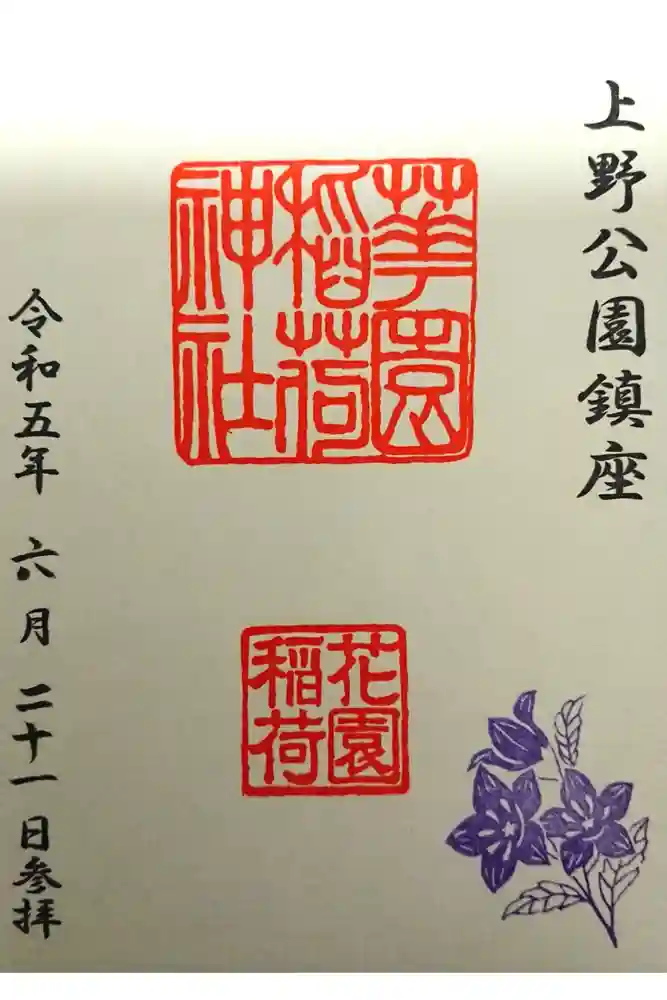 上野公園鎮座
華園
稲荷
神社
花園
稲荷
令和五年 六月 二十一日参拝